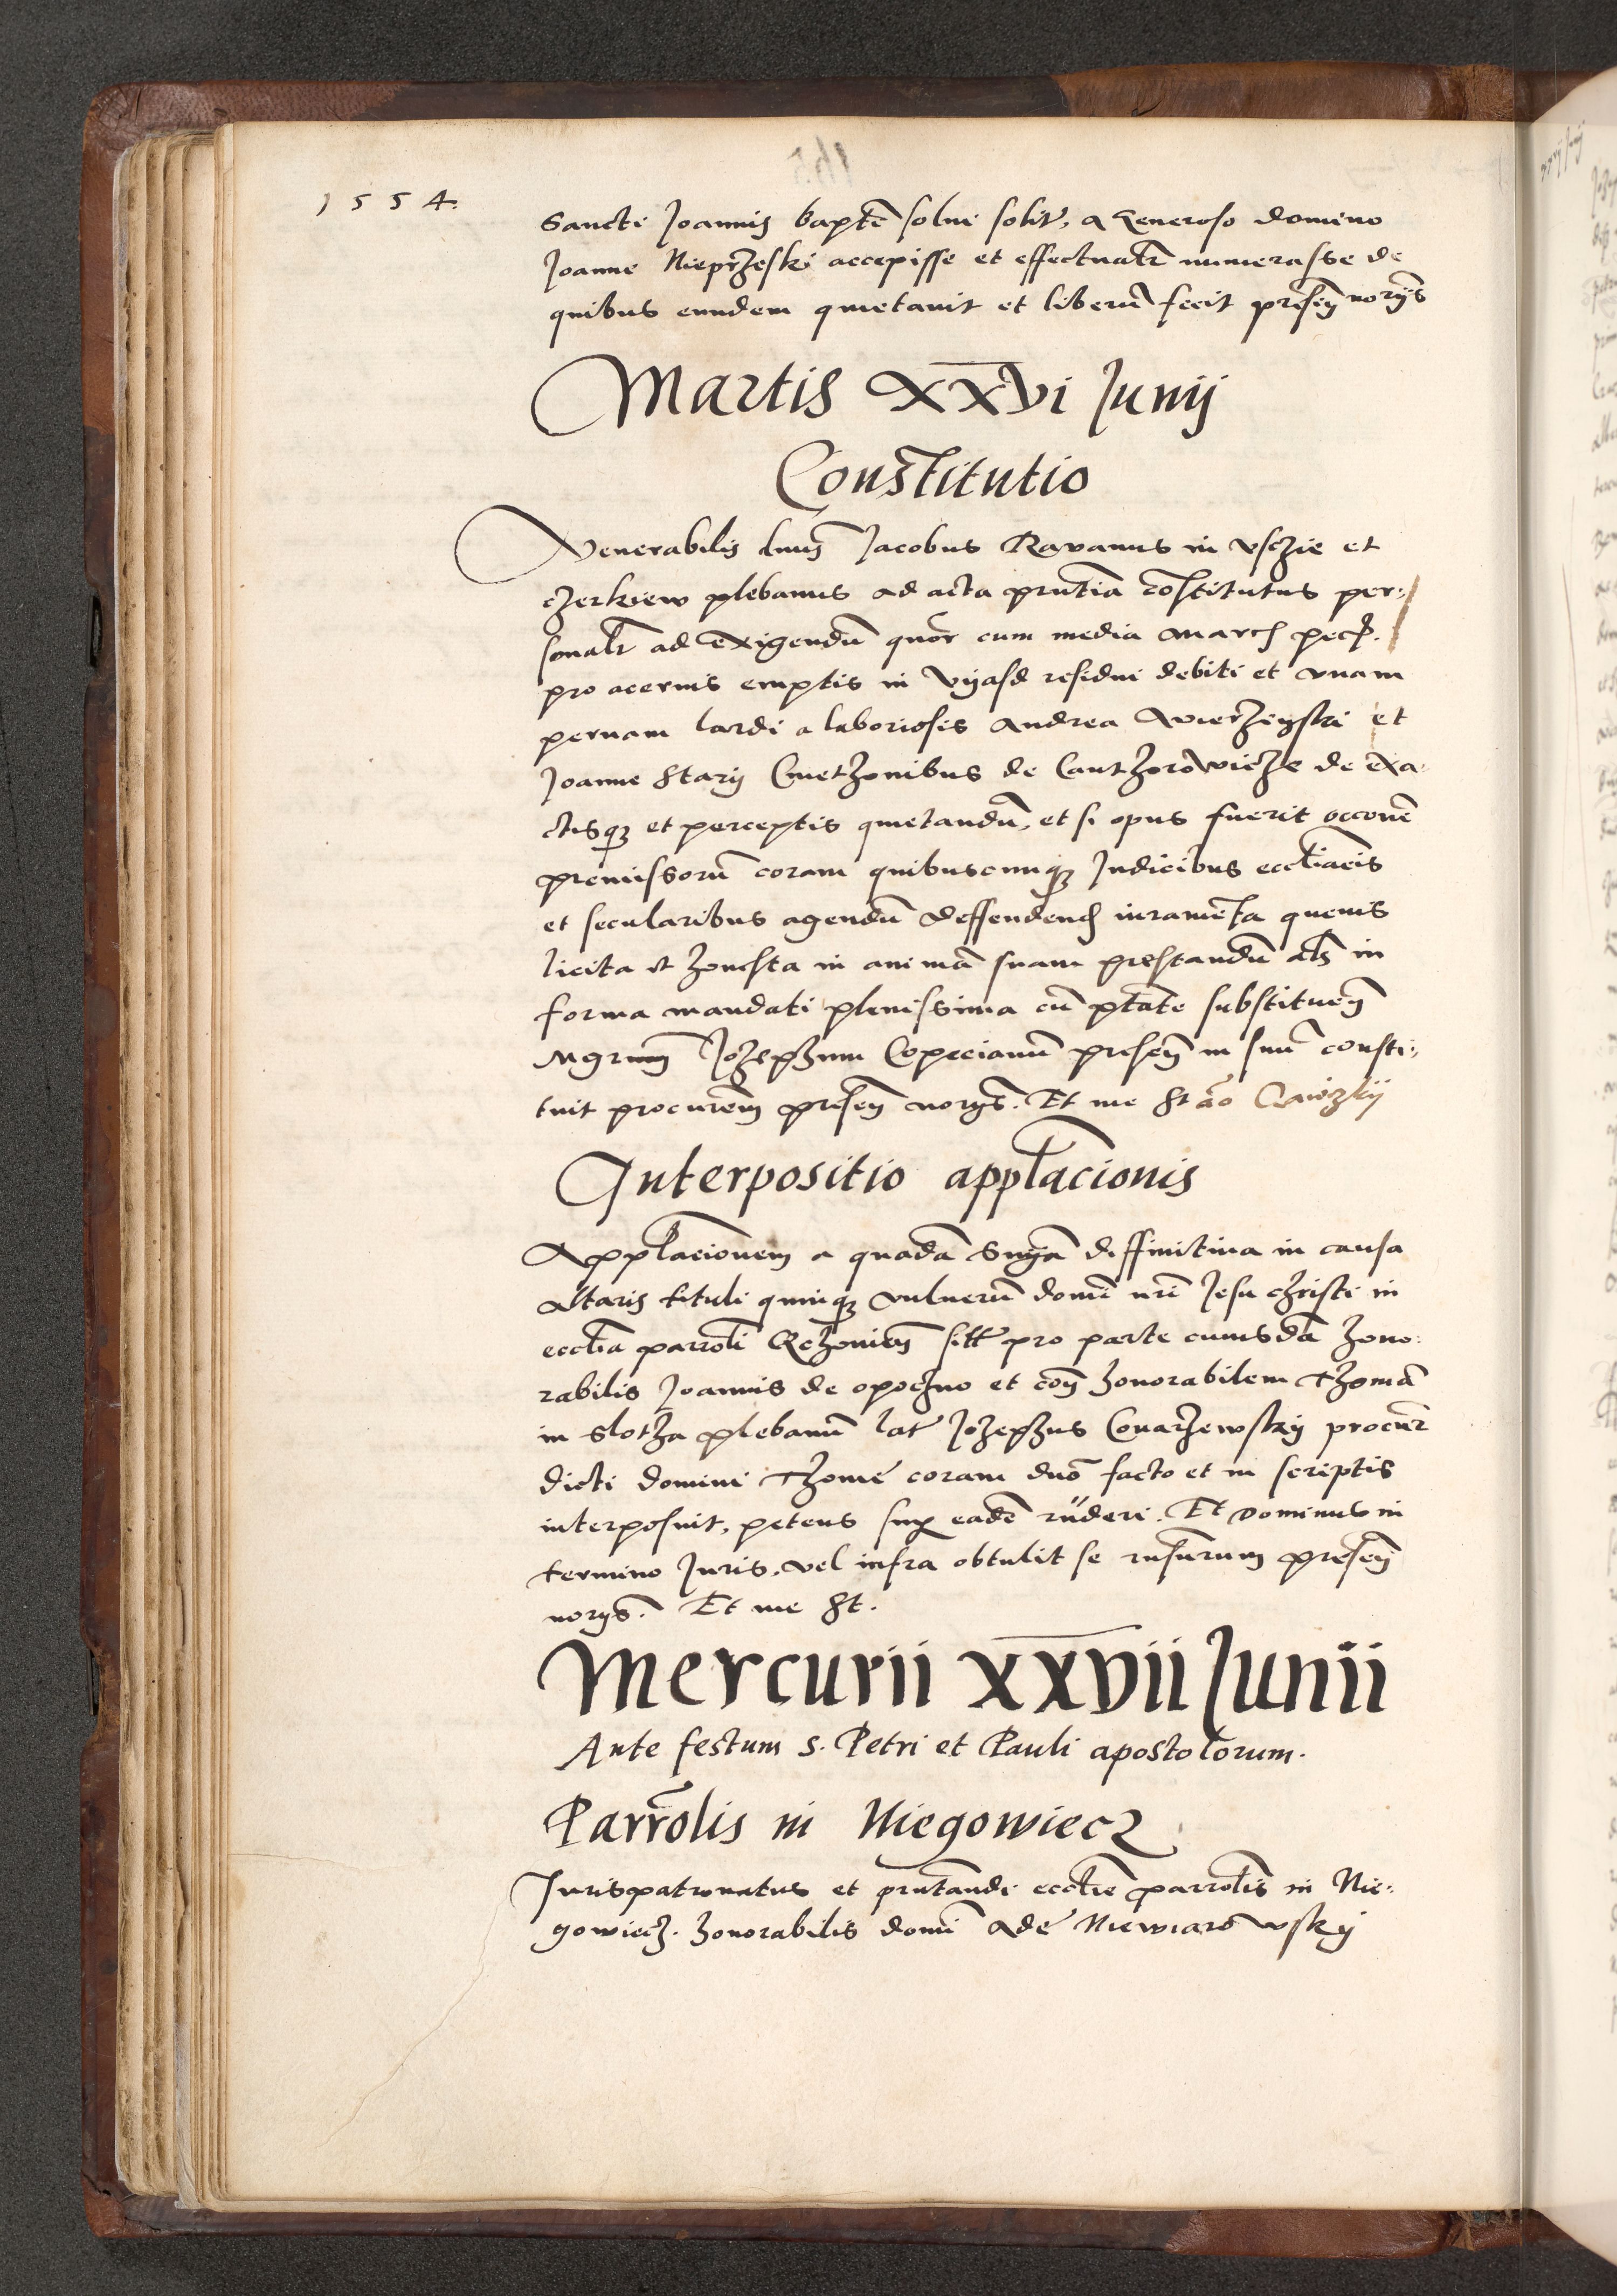 1554.
Sancti Joannis baptē solui solit̃, a Generoso domino
Joanne Nieprzeski accepisse et effectualr̃ numerasse de
quibus eundem quietauit et liberū fecit presen̄ norys̄
Martis XXVI Junij
Constitutio
Venerabilis dnus̄ Jacobus Ravanus in Vsczie et
czerkiew plebanus ad acta prntia cōstitutus per:
sonalr̃ ad exigendū quor̃ cum media march pec̃.
pro aceruis emptis in Vyasd residui debiti et vnam
pernam lardi a laboriosis Andrea Wierzeyski et
Joanne Stary Cmethonibus de Canthorowicze de exa:
ctisq3 et perceptis quietandū, et si opus fuerit occōne
premissorū coram quibuscunq3 Judicibus eccl̃iacis
et secularibus agendū deffendend iuramēta queuis
licita et honesta in animā suam prestandū als̄ in
forma mandati plenissima cū ptāte substituen̄
Mgrum̄ Jozephum Copecianū presen̄ in suū consti:
tuit procurem̄ presen̄ norys̄. Et me St ão
Interpositio appl̃acionis
Appl̃acionem a quadā Snia diffinitiua in causa
Altaris tituli quinq3 vulnerū domī nrī Jesu christi in
eccl̃ia parrol̃i sitt pro parte cuiusdā hono:
rabilis Joannis de opoczno et con̄ honorabilem Thomā
in Slotha plebanū lat̃ Jozephus Conarzewsky procur̃
dicti domini Thome coram dnō facto et in scriptis
interposuit, petens sup eadē rñderi. Et Dominus in
termino Juris, vel infra obtulit se rnsurum presen̄
norys̄. Et me St.
Mercurii XXVII Junii
Ante festum S. Petri et Pauli apostolorum.
Parrōlis in Niegowiecz
Jurispatronatus et prntandi eccl̃ie parrol̃is in Nie:
gowiecz. honorabilis domī Ade Niewiarowsky